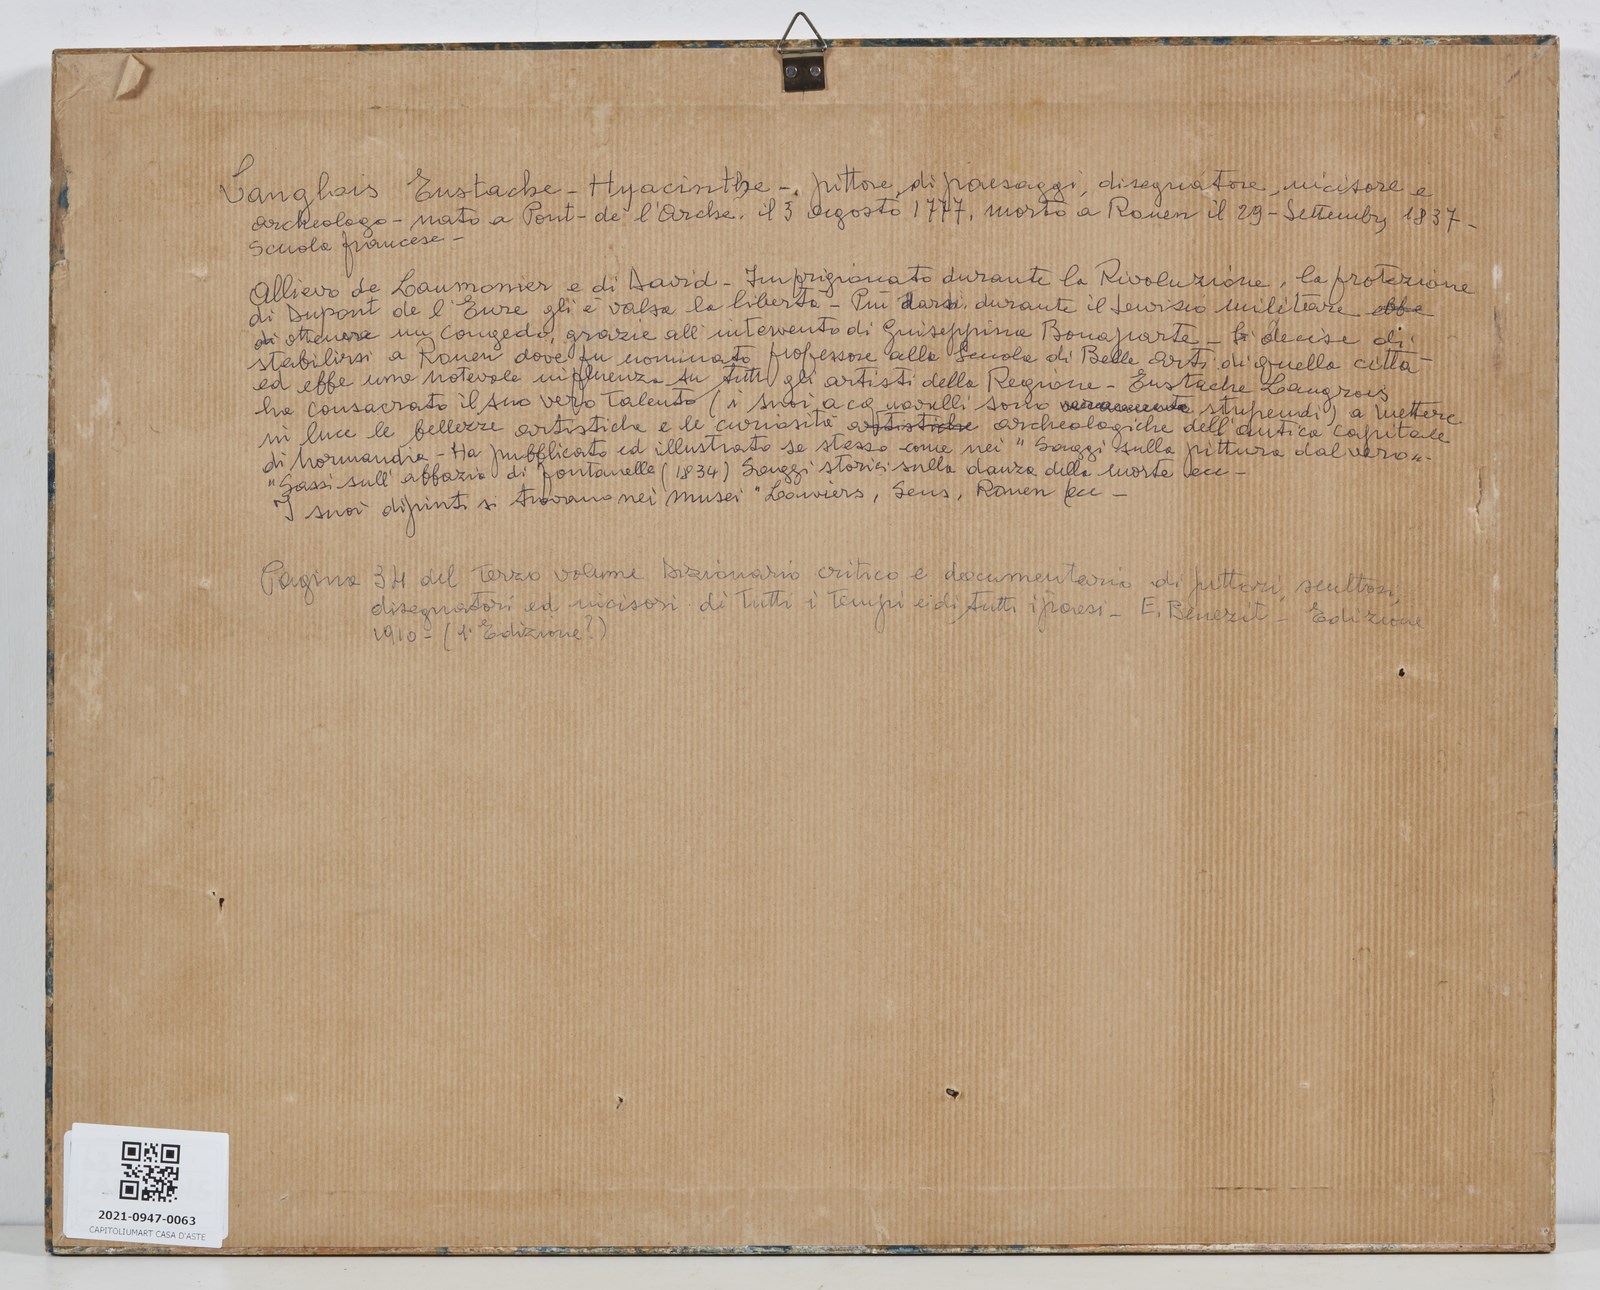 Langlois Eustache - Hyacinthe -. pittore, di paesaggi, disegnatore, incisore e
archeologo - nato a Pont-de l'Arche. il 3 agosto 1777. morto a Rouen il 29-Settembre 1837-
Scuola francese -
Allievo de Laumonier e di David - Imprigionato durante la Rivoluzione, la protezione
di Dupont de l'Eure gli è valsa la libertà - Più tardi durante il servizio militare ebbe
di ottenere un congedo, grazie all'intervento di Guiseppina Bonaparte - Si decise di
stabilirsi a Rouen dove fu nominato professore alla Scuola di Belle Arti di quella città
ed ebbe una notevole influenza su tutti gli artisti della Regione - Eustache Langrois
ha consacrato il suo vero talento (i suoi acquarelli sono veramente stupendi) a mettere
in luce le bellezze artistiche e le curiosità artistiche archeologiche dell'antica capitale
di Normandia - Ha pubblicato ed illustrato se stesso come nei "Saggi sulla pittura dal vero".
"Sassi sull'abbazia di Fontanelle (1834) Saggi storici sulla danza della morte ecc -
I suoi dipinti si trovano nei musei "Louviers, Sens, Rouen ecc -
Pagina 34 del Terzo volume Dizionario critico e documentario di pittori, scultori,
disegnatori ed incisori di Tutti i Tempi e di tutti i paesi - E. Benezit - Edizione
1910 - (1ª Edizione?)
2021-0947-0063
CAPITOLIUMART CASA D'ASTE